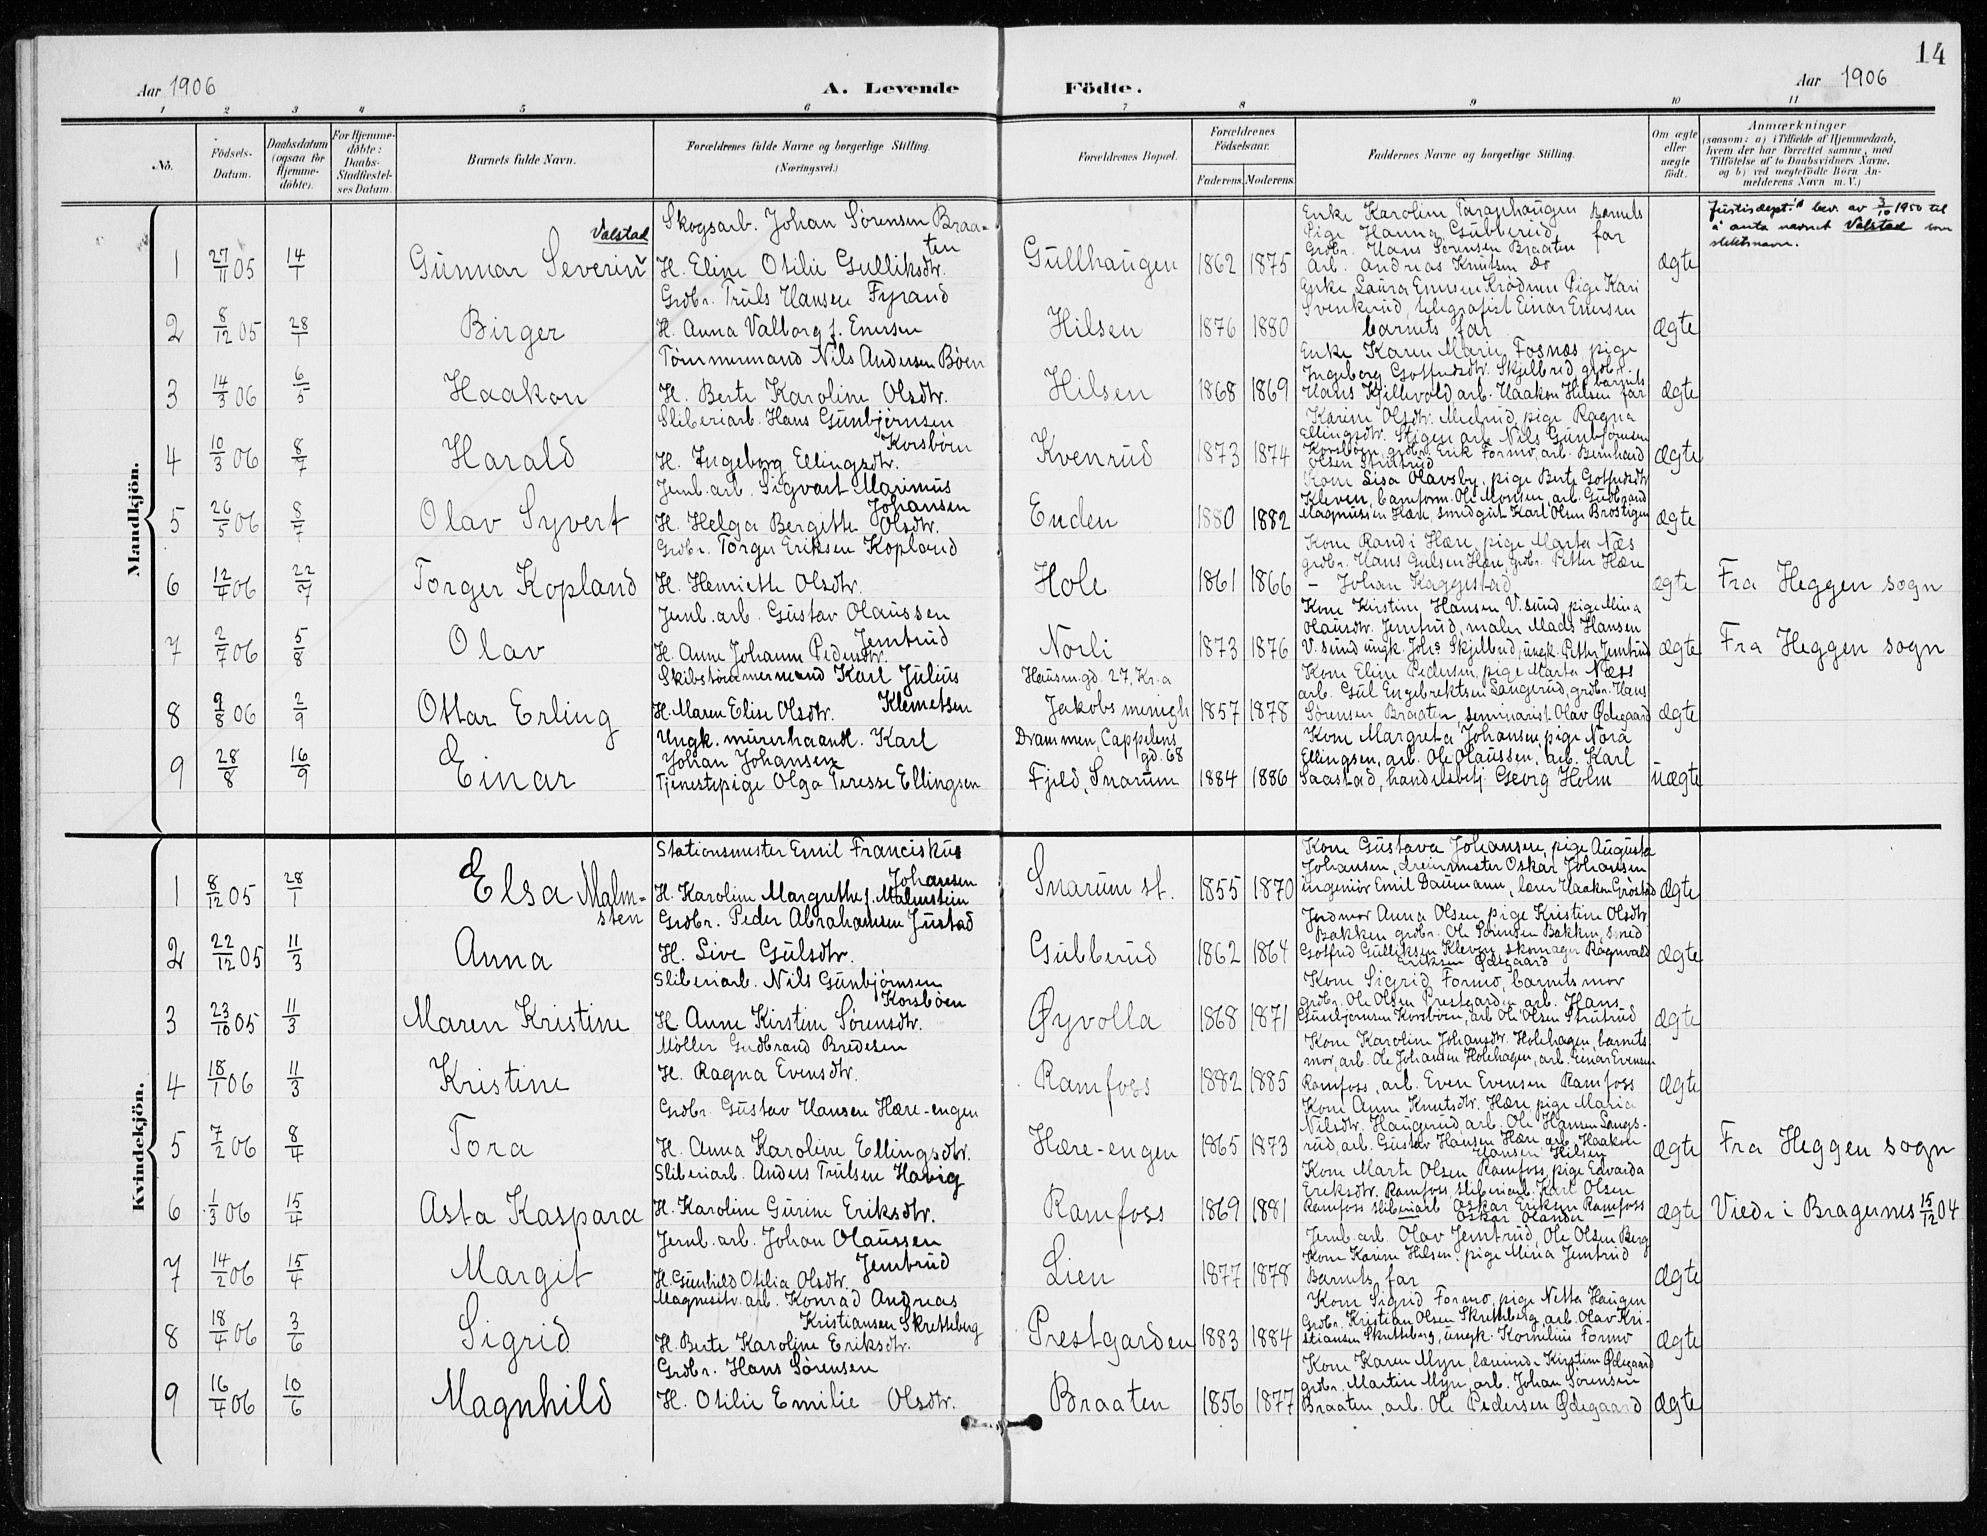 14
Aar 1906
A. Levende
Födte.
Aar 1906
1 2 3 4 5 6 7 8 9 10 11
Nö.
Födsels-
Datum.
Daabsdatum
(ogsaa for
Hjemme-
döbte).
For Hjemme-
döbte:
Daabs-
Stadfæstel-
ses Datum.
Barnets fulde Navn.
Forældrenes fulde Navne og borgerlige Stilling.
(Næringsvei.)
Forældrenes Bopæl.
Forældrenes
Födselsaar.
Faderens. Moderens.
Faddernes Navne og borgerlige Stilling.
Om ægte
eller
uægte
födt.
Anmærkninger
(saasom: a) i Tilfælde af Hjemmedaab,
hvem der har forrettet samme, med
Tilföielse af to Daabsvidners Navne.
og b) ved uægtefödte Börn An-
melderens Navn m. V.)
Mandkjön.
1 27/11 05 14/1
Valstad
Gunnar Severin
Skogsarb. Johan Sørensen Braa-
ten
H. Eline Otilie Gulliksdtr.
Gullhaugen 1862 1875
Enke Karoline Taraphaugen barnets
Pige Hanna Gubberud far
Grdbr. Hans Sørensen Braaten
Arb. Andreas Knutsen do
Ægte
Justisdept.s bev. av 3/10 1950 til
å anta navnet Valstad som
slektsnavn.
2 8/12 05 28/1
Birger
Grdbr. Truls Hansen Fyrand
H. Anna Valborg f. Enersen
Hilsen 1876 1880
Enke Laura Enersen Krødrum Pige Kari
Svenkerud, telegrafist Einar Enersen
barnets far
Ægte
3 14/3 06 6/5
Haakon
Tømmermand Nils Andersen Bøen
H. Berte Karoline Olsdtr.
Hilsen 1868 1869
Enke Karen Marie Fosnæs pige
Ingeborg Gotfredsdtr. Skjelbrid grdbr.
Hans Kjellevold, arb. Haakon Hilsen barnets far
Ægte
4 10/3 06 8/7
Harald
Sliberiarb. Hans Gunbjørnsen
Korsbøen
H. Ingeborg Ellingsdtr.
Kvenrud 1873 1874
Karine Olsdtr. Melrud, pige Ragna
Ellingsdtr. Stigen arb. Nils Gunbjørnsen
Korsbøen, grdbr. Erik Formo, arb. Bernhard
Olsen Strutrud
Ægte
5 26/5 06 8/7
Olav Syvert
Jernb. arb. Sigvart Marinius
Johansen
H. Helga Bergitte Olsdtr.
Enden 1880 1882
Kone Lisa Olavsby, pige Berte Gotfredsdtr
Kleven, banform. Ole Monsen, arb. Gudbrand
Magnussen Hære, smedgut Karl Olsen Brostigen
Ægte
6 12/4 06 22/7
Torger Kopland
Grdbr. Torger Eriksen Kopland
H. Henriette Olsdtr.
Hole 1861 1866
Kone Randi Hære, pige Marta Næs
grdbr. Hans Gulsen Hære, grdbr. Petter Hære
- Johan Kaggestad
Ægte
Fra Heggen sogn
7 2/7 06 5/8
Olav
Jernb. arb. Gustav Olaussen
Jemtrud
H. Anne Johanne Pedersdtr.
Norli 1873 1876
Kone Kirstine Hansen V. sund, pige Mina
Olausdtr. Jemtrud, maler Mads Hansen
V. sund ungk. Johs Skjelbred, ungk. Petter Jemtrud
Ægte
Fra Heggen sogn
8 9/3 06 2/9
Ottar Erling
Skibstømmermand Karl Julius
Klemetsen
H. Maren Elise Olsdtr.
Hausm.gd. 27, Kr.a
Jakobs menigh 1857 1878
Kone Eline Pedersen, pige Marta Næss
arb. Gul Engebrektsen Langerud, grdbr. Hans
Sørensen Braaten, seminarist Olav Ødegaard
Ægte
9 28/8 16/9
Einar
Ungk. murerhaandl. Karl
Johan Johansen
Tjenestepige Olga Teresse Ellingsen
Drammen, Cappelens
gd. 68
Fjeld, Snarum 1884 1886
Kone Margreta Johansen, pige Nora
Ellingsen, arb. Ole Olaussen, arb. Karl
Saastad, handelsbetj. Georg Holm
Uægte
Kvindekjön.
1 8/12 05 28/1
Elsa Malm-
sten
Stationsmester Emil Franciskus
Johansen
H. Karoline Margrethe f. Malmstein
Snarum st. 1855 1870
Kone Gustava Johansen, pige Augusta
Johansen, dreiermester Oskar Johansen
ingeniør Emil Daumann, lærer Haakon Grøstad
Ægte
2 22/12 05 11/3
Anna
Grdbr. Peder Abrahamsen Justad
H. Live Gulsdtr.
Gubberud 1862 1864
Jordmor Anna Olsen, pige Kristine Olsdtr.
Bakken grdbr. Ole Sørensen Bakken, smed
Gotfred Gulliksen Kleven, skomager Ragnvald
Eriksen Ødegaard
Ægte
3 23/10 05 11/3
Maren Kristine
Sliberiarb. Nils Gunbjørnsen
Korsbøen
H. Anne Kirstine Sørensdtr.
Øyvolla 1868 1871
Kone Sigrid Formo, barnets mor
grdbr. Ole Olsen Prestgarden arb. Hans
Gunbjørnsen Korsbøen, arb. Ole Olsen Strutrud
Ægte
4 18/1 06 11/3
Kristine
Møller Gudbrand Bredesen
H. Ragna Evensdtr.
Ramfoss 1882 1885
Kone Karoline Johansdtr. Holehagen, barnets
mor, arb. Ole Johansen Holehagen, arb. Einar Evensen
Ramfoss, arb. Even Evensen Ramfoss
Ægte
5 7/2 06 8/4
Tora
Grdbr. Gustav Hansen Hære-engen
H. Anna Karoline Ellingsdtr.
Hære-engen 1865 1873
Kone Anne Knutsdtr. Hære, pige Maria
Nilsdtr. Haugerud arb. Ole Hansen Langs-
rud, arb. Gustav Hansen Hære arb. Haakon
Hansen Hilsen
Ægte
Fra Heggen sogn
6 1/3 06 15/4
Asta Kaspara
Sliberiarb. Anders Trulsen Hovig
H. Karoline Gurine Eriksdtr.
Ramfoss 1869 1881
Kone Marte Olsen Ramfoss, pige Edvarda
Eriksdtr. Ramfoss sliberiarb. Karl Olsen
Ramfoss sliberiarb Oskar Eriksen Ramfoss
Oskar Olander
Ægte
Viede i Bragernes 15/12 04
7 14/2 06 15/4
Margit
Jernb. arb. Johan Olaussen
Jemtrud
H. Gunhild Otilia Olsdtr.
Lien 1877 1878
Jernb. arb. Olav Jemtrud, Ole Olsen Berg
Kone Karine Hilsen, pige Mina Jemtrud
Barnets far
Ægte
8 18/4 06 3/6
Sigrid
Magnesitv. arb. Konrad Andreas
Kristiansen Skretteberg
H. Berte Karoline Eriksdtr.
Prestgarden 1883 1884
Kone Sigrid Formo, pige Netta Haugen
Grdbr. Kristian Olsen Skretteberg, arb. Olav Kri-
stiansen Skretteberg, ungk. Kornelius Formo
Ægte
9 16/4 06 10/6
Magnhild
Grdbr. Hans Sørensen
H. Otilie Emilie Olsdtr.
Braaten 1856 1877
Kone Karen Myre, lærerinde Kirstine Ødegaard
grdbr. Martin Myre, arb. Johan Sørensen
Braaten, arb. Ole Pedersen Ødegaard
Ægte